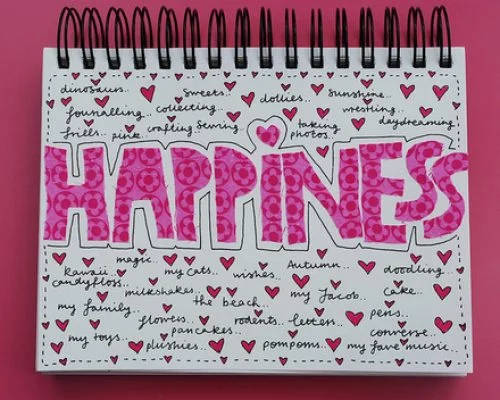 dinosaurs.. Sweets.. dollies.. Sunshine..
journalling.. collecting.. wrestling..
frills.. pink.. crafting. Sewing.. taking photos.. daydreaming
HAPPINESS
magic.. my cats.. wishes.. Autumn.. doodling
kawaii.. candyfloss.. milkshakes.. the beach.. my Jacob.. Cake..
my family.. flowers.. rodents.. letters.. pens..
my toys.. pancakes.. plushies.. pompoms.. converse.. my fave music..